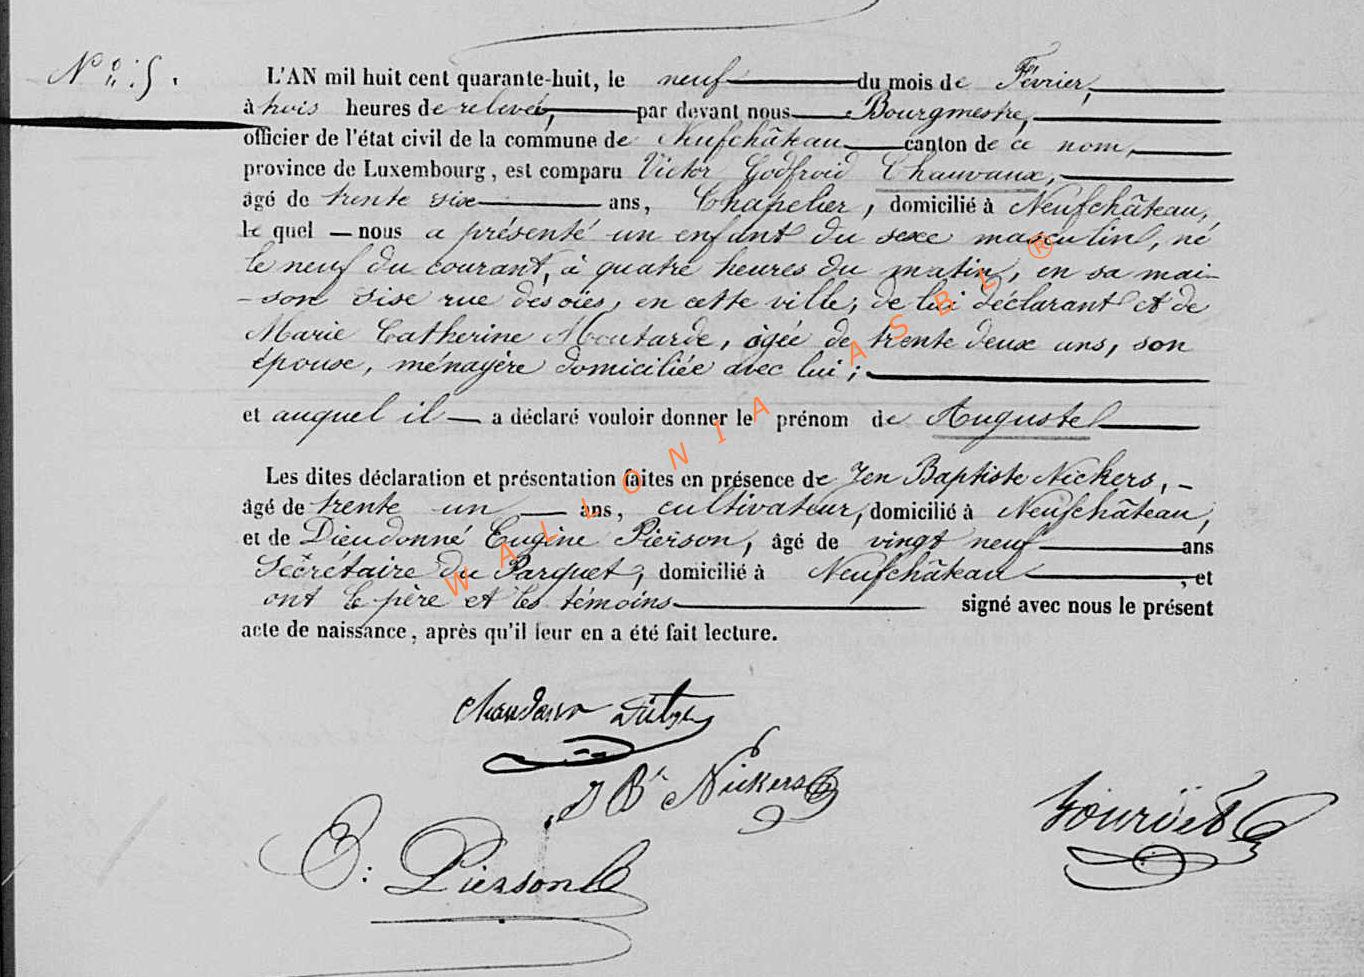 N° 5.
L'AN mil huit cent quarante-huit, le neuf du mois de Février,
à trois heures de relevée, par devant nous Bourgmestre,
officier de l'état civil de la commune de Neufchâteau canton de ce nom,
province de Luxembourg, est comparu Victor Godfroid Chauvaux,
âgé de trente six ans, Chapelier, domicilié à Neufchâteau,
le quel nous a présenté un enfant du sexe masculin, né
le neuf du courant, à quatre heures du matin, en sa mai-
-son sise rue des oies, en cette ville, de lui déclarant et de
Marie Catherine Moutarde, âgée de trente deux ans, son
épouse, ménagère domiciliée avec lui;
et auquel il a déclaré vouloir donner le prénom de Auguste
Les dites déclaration et présentation faites en présence de Jen Baptiste Nickers,
âgé de trente un ans, cultivateur, domicilié à Neufchâteau,
et de Dieudonné Eugène Pierson, âgé de vingt neuf ans
Secrétaire du Parquet, domicilié à Neufchâteau, et
ont le père et les témoins signé avec nous le présent
acte de naissance, après qu'il leur en a été fait lecture.
J Bte Nickers
E: Pierson
WALLONIA ASBL ®